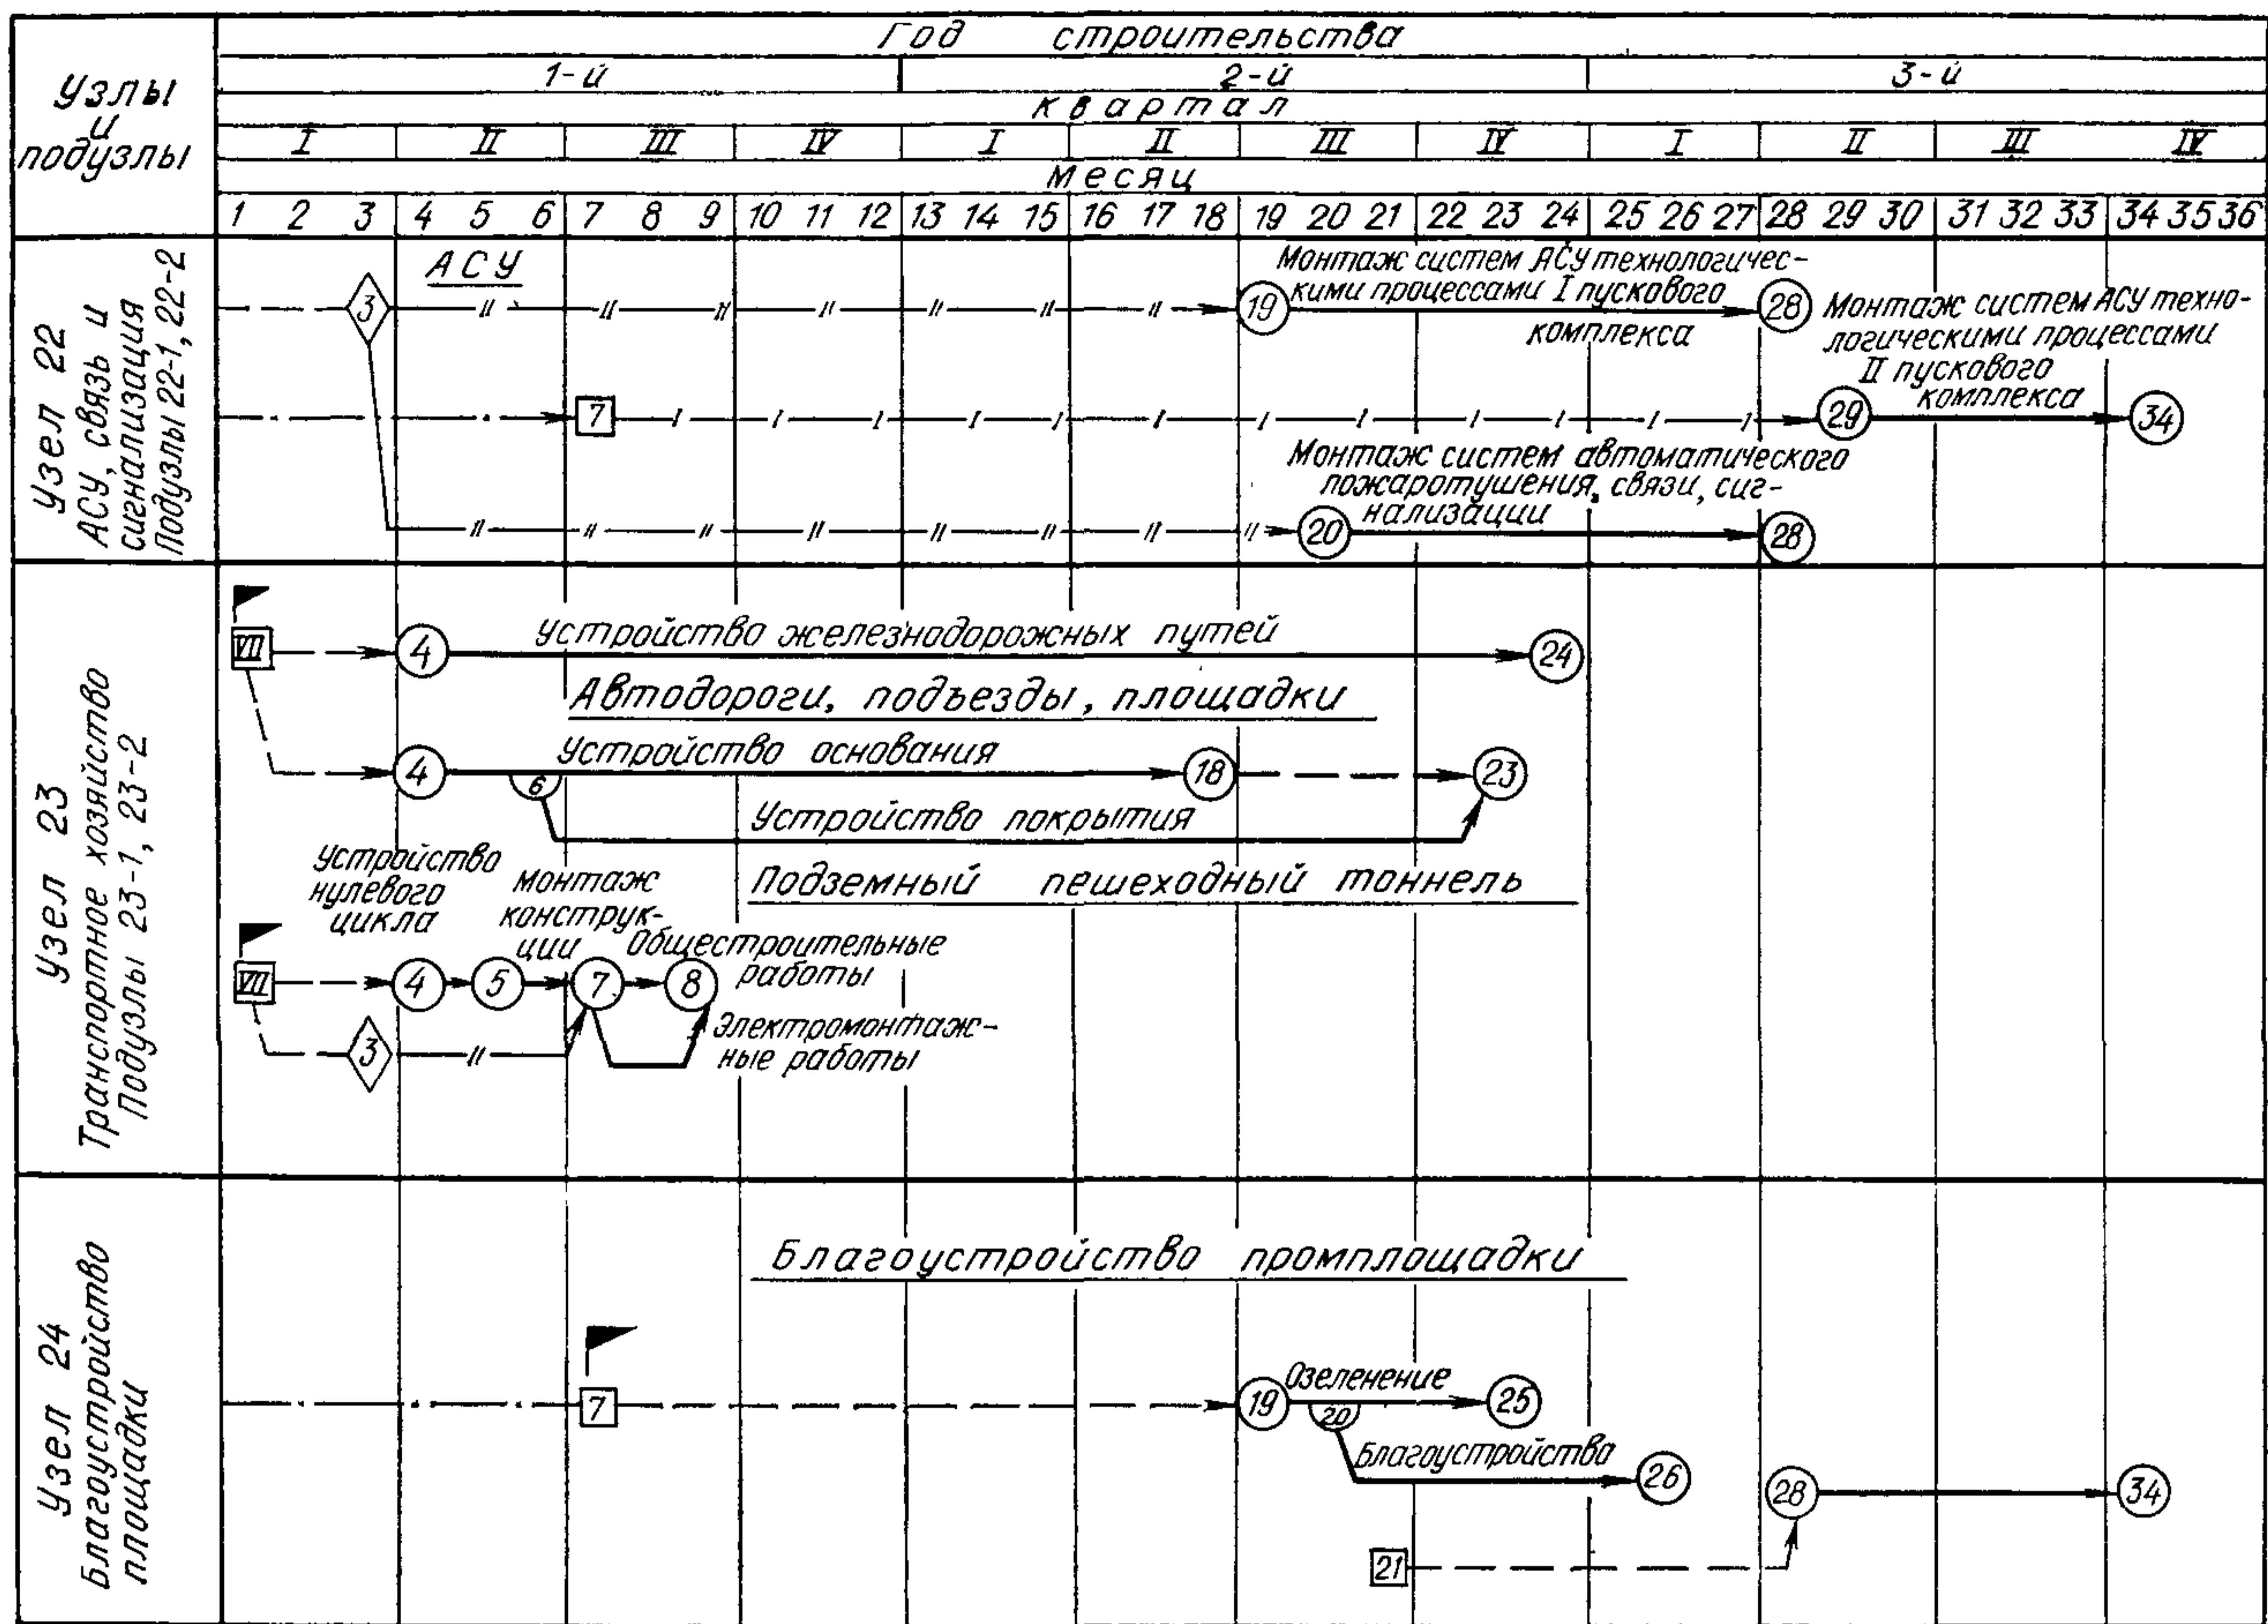 Узлы
и
подузлы
Год строительства
1-й 2-й 3-й
квартал
I II III IV I II III IV I II III IV
месяц
1 2 3 4 5 6 7 8 9 10 11 12 13 14 15 16 17 18 19 20 21 22 23 24 25 26 27 28 29 30 31 32 33 34 35 36
Узел 22
АСУ, связь и
сигнализация
Подузлы 22-1, 22-2
АСУ
3
19
Монтаж систем АСУ технологичес-
кими процессами I пускового
комплекса
28
Монтаж систем АСУ техно-
логическими процессами
II пускового
комплекса
7
29
34
Монтаж систем автоматического
пожаротушения, связи, сиг-
нализации
20
28
Узел 23
Транспортное хозяйство
Подузлы 23-1, 23-2
VII
4
Устройство железнодорожных путей
24
Автодороги, подъезды, площадки
4
Устройство основания
6
18
23
Устройство покрытия
Подземный пешеходный тоннель
Устройство
нулевого
цикла
монтаж
конструк-
ции
Общестроительные
работы
VII
4
5
7
8
3
Электромонтаж-
ные работы
Узел 24
Благоустройство
площадки
Благоустройство промплощадки
7
19
Озеленение
20
25
Благоустройства
26
28
34
21